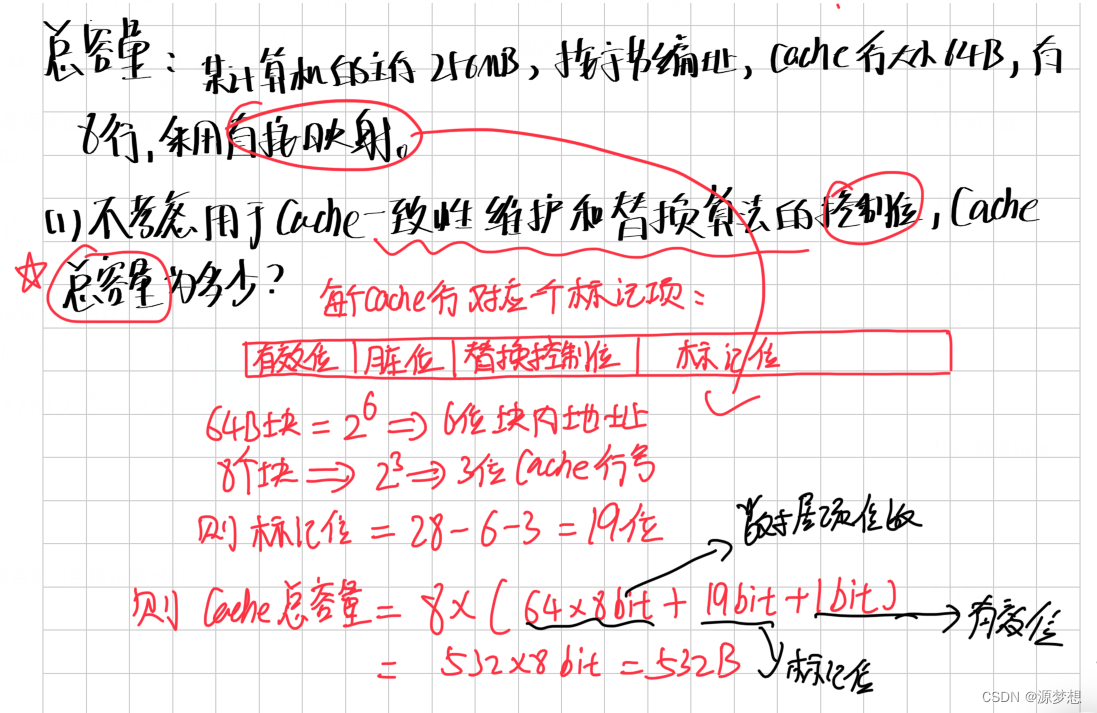 总容量：某计算机的主存256MB，按字节编址，Cache行大小64B，有
8行，采用直接映射。
(1)不考虑用于Cache一致性维护和替换算法的控制位，Cache
总容量为多少？
每个Cache行对应一个标记项：
有效位 脏位 替换控制位 标记位
64B块 = 2^6 => 6位块内地址
8个块 => 2^3 => 3位Cache行号
则标记位 = 28-6-3 = 19位
位数
则 Cache总容量 = 8×(64×8bit + 19bit + 1bit)
有效位
= 532×8bit = 532B
标记位
CSDN @源梦想